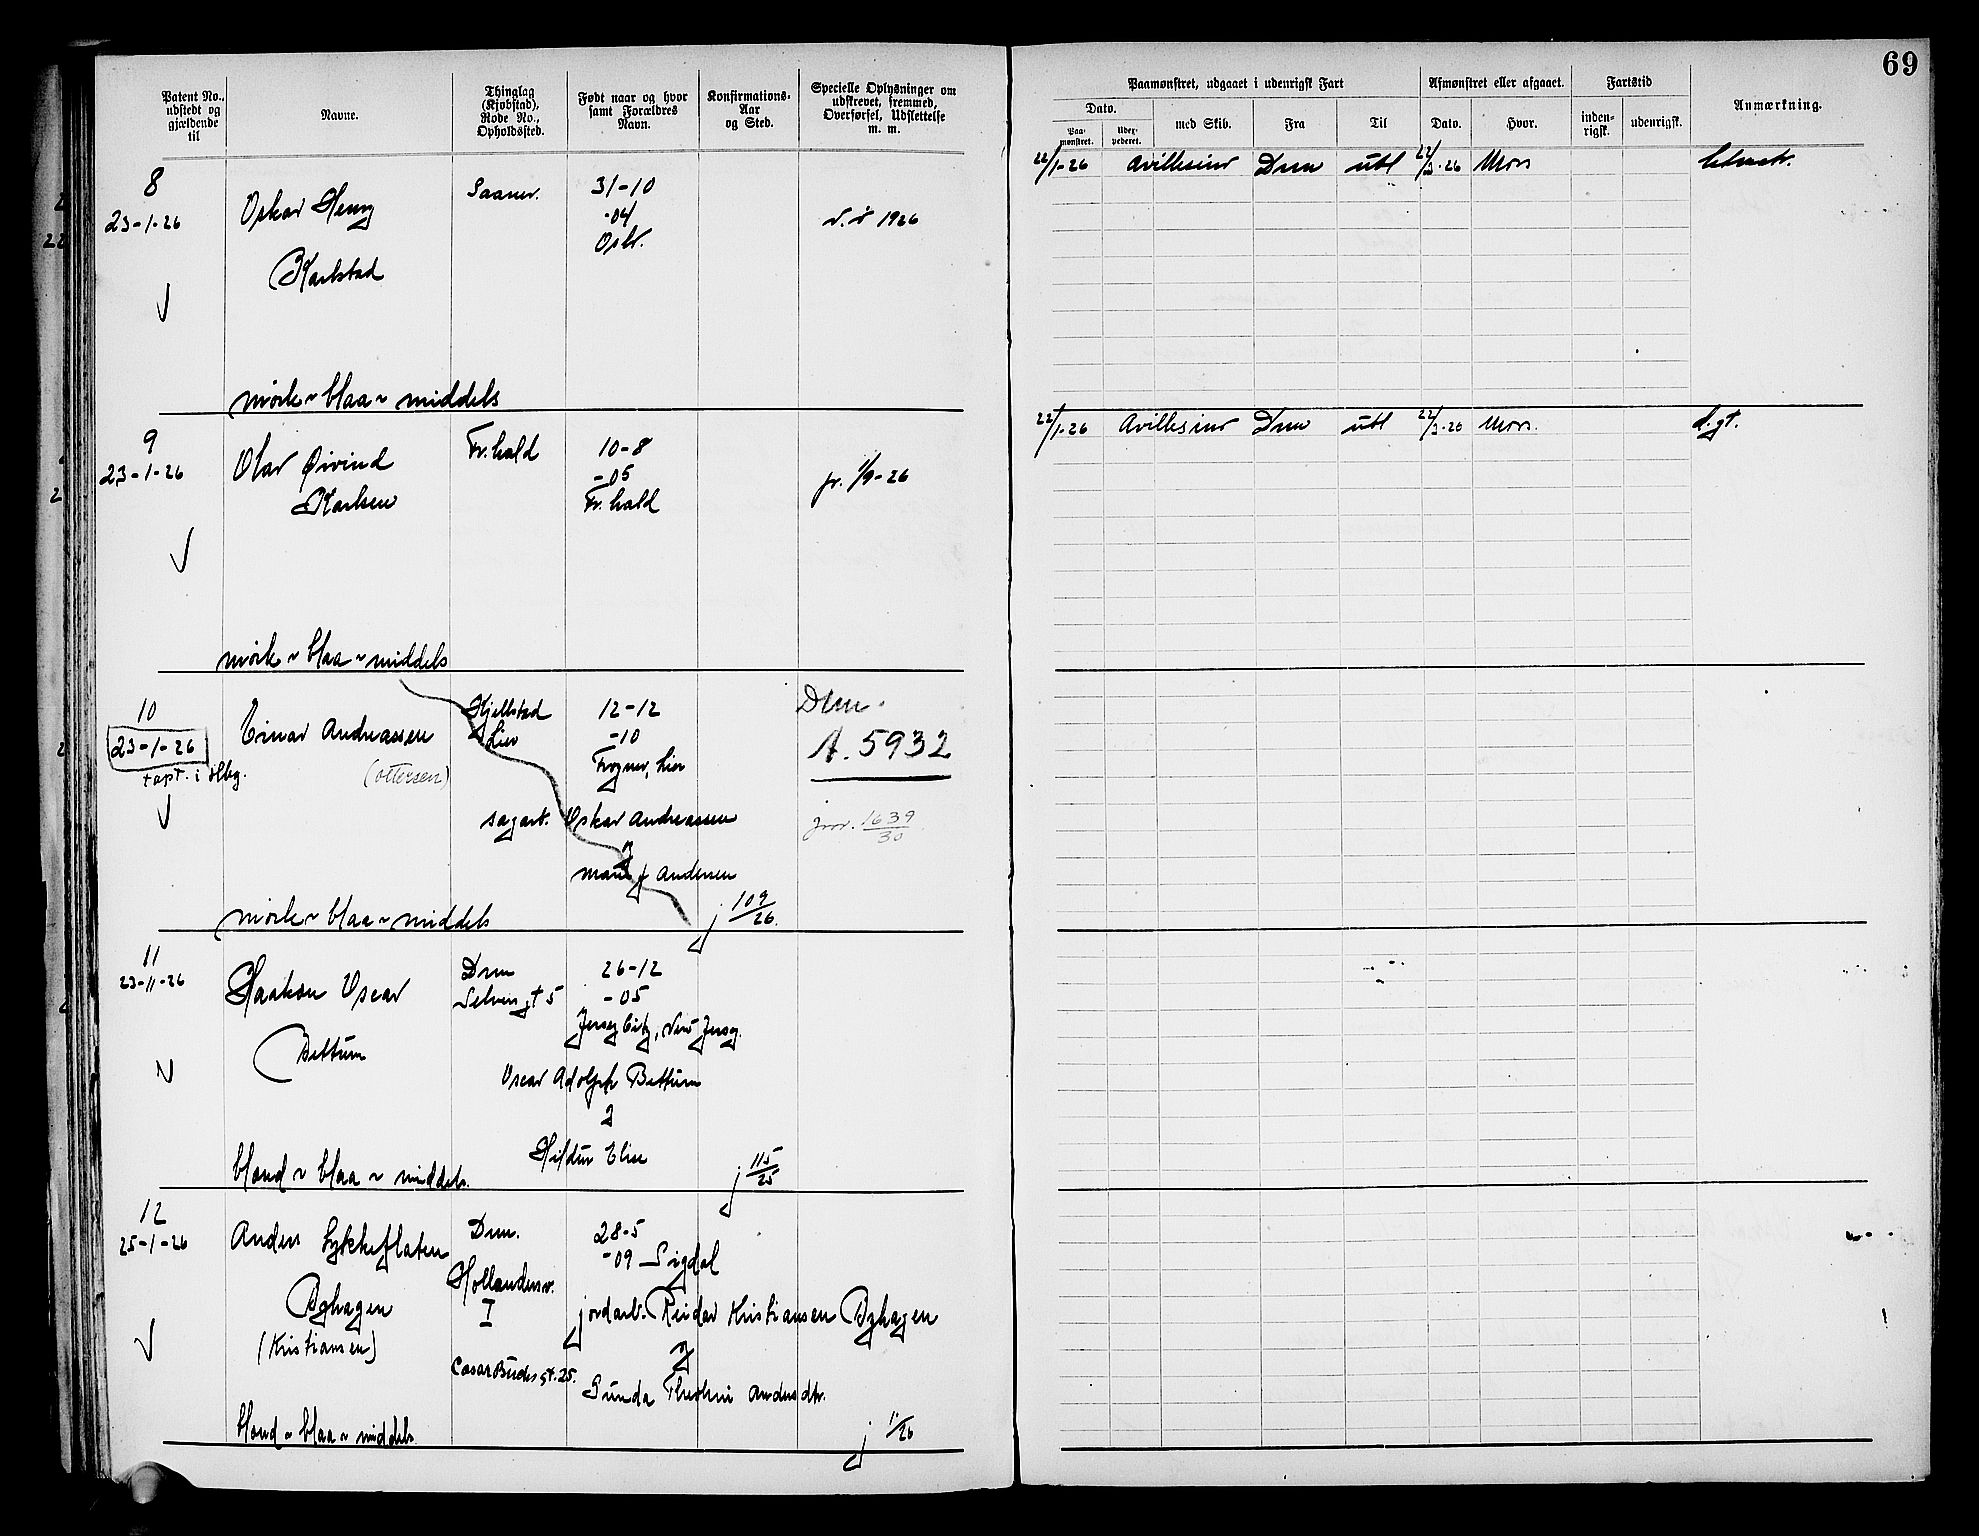 69
Patent No., udstedt og gjældende til
Navne.
Thinglag (Kjøbstad), Rode No., Opholdssted.
Født naar og hvor samt Forældres Navn.
Konfirmations-Aar og Sted.
Specielle Oplysninger om udskrevet, fremmed, Overførsel, Udslettelse m. m.
Paamønstret, udgaaet i udenrigsk Fart
Dato.
Paa-mønstret.
Udex-pederet.
med Skib.
Fra
Til
Afmønstret eller afgaaet.
Dato.
Hvor.
Fartstid
inden-rigsk.
udenrigsk.
Anmærkning.
8
23-1-26
Oskar Henry
Karlstad
31-10
-04
1926
22/1-26 Drm utl 22/3-26 Moss
mørk ~ blaa ~ middels
9
23-1-26
Olav Øivind
Karlsen
Fr.hald
10-8
-05
Fr.hald
fr. 1/9-26
22/1-26 Drm utl Moss.
d.gt.
mørk ~ blaa ~ middels
10
23-1-26
tapt. i
Einar Andreassen
(Ottersen)
Kjellstad
Lier
12-12
-10
Frogner, Lier
Drm.
A. 5932
sagarb. Oskar Andreassen
jnr. 1639/30
mørk ~ blaa ~ middels
j 109/26.
11
23-11-26
Haakon Oscar
Bettum
Drm
26-12
-05
Jersey City, New Jersey.
Oscar Adolph Bettum
blond ~ blaa ~ middels.
j 115/25
12
25-1-26
Anders Lykkeflaten
Byhagen
(Kristiansen)
Drm.
I
28-5
-09 Sigdal
jordarb. Reidar Kristiansen Byhagen
25.
blond ~ blaa ~ middels.
j 1/26